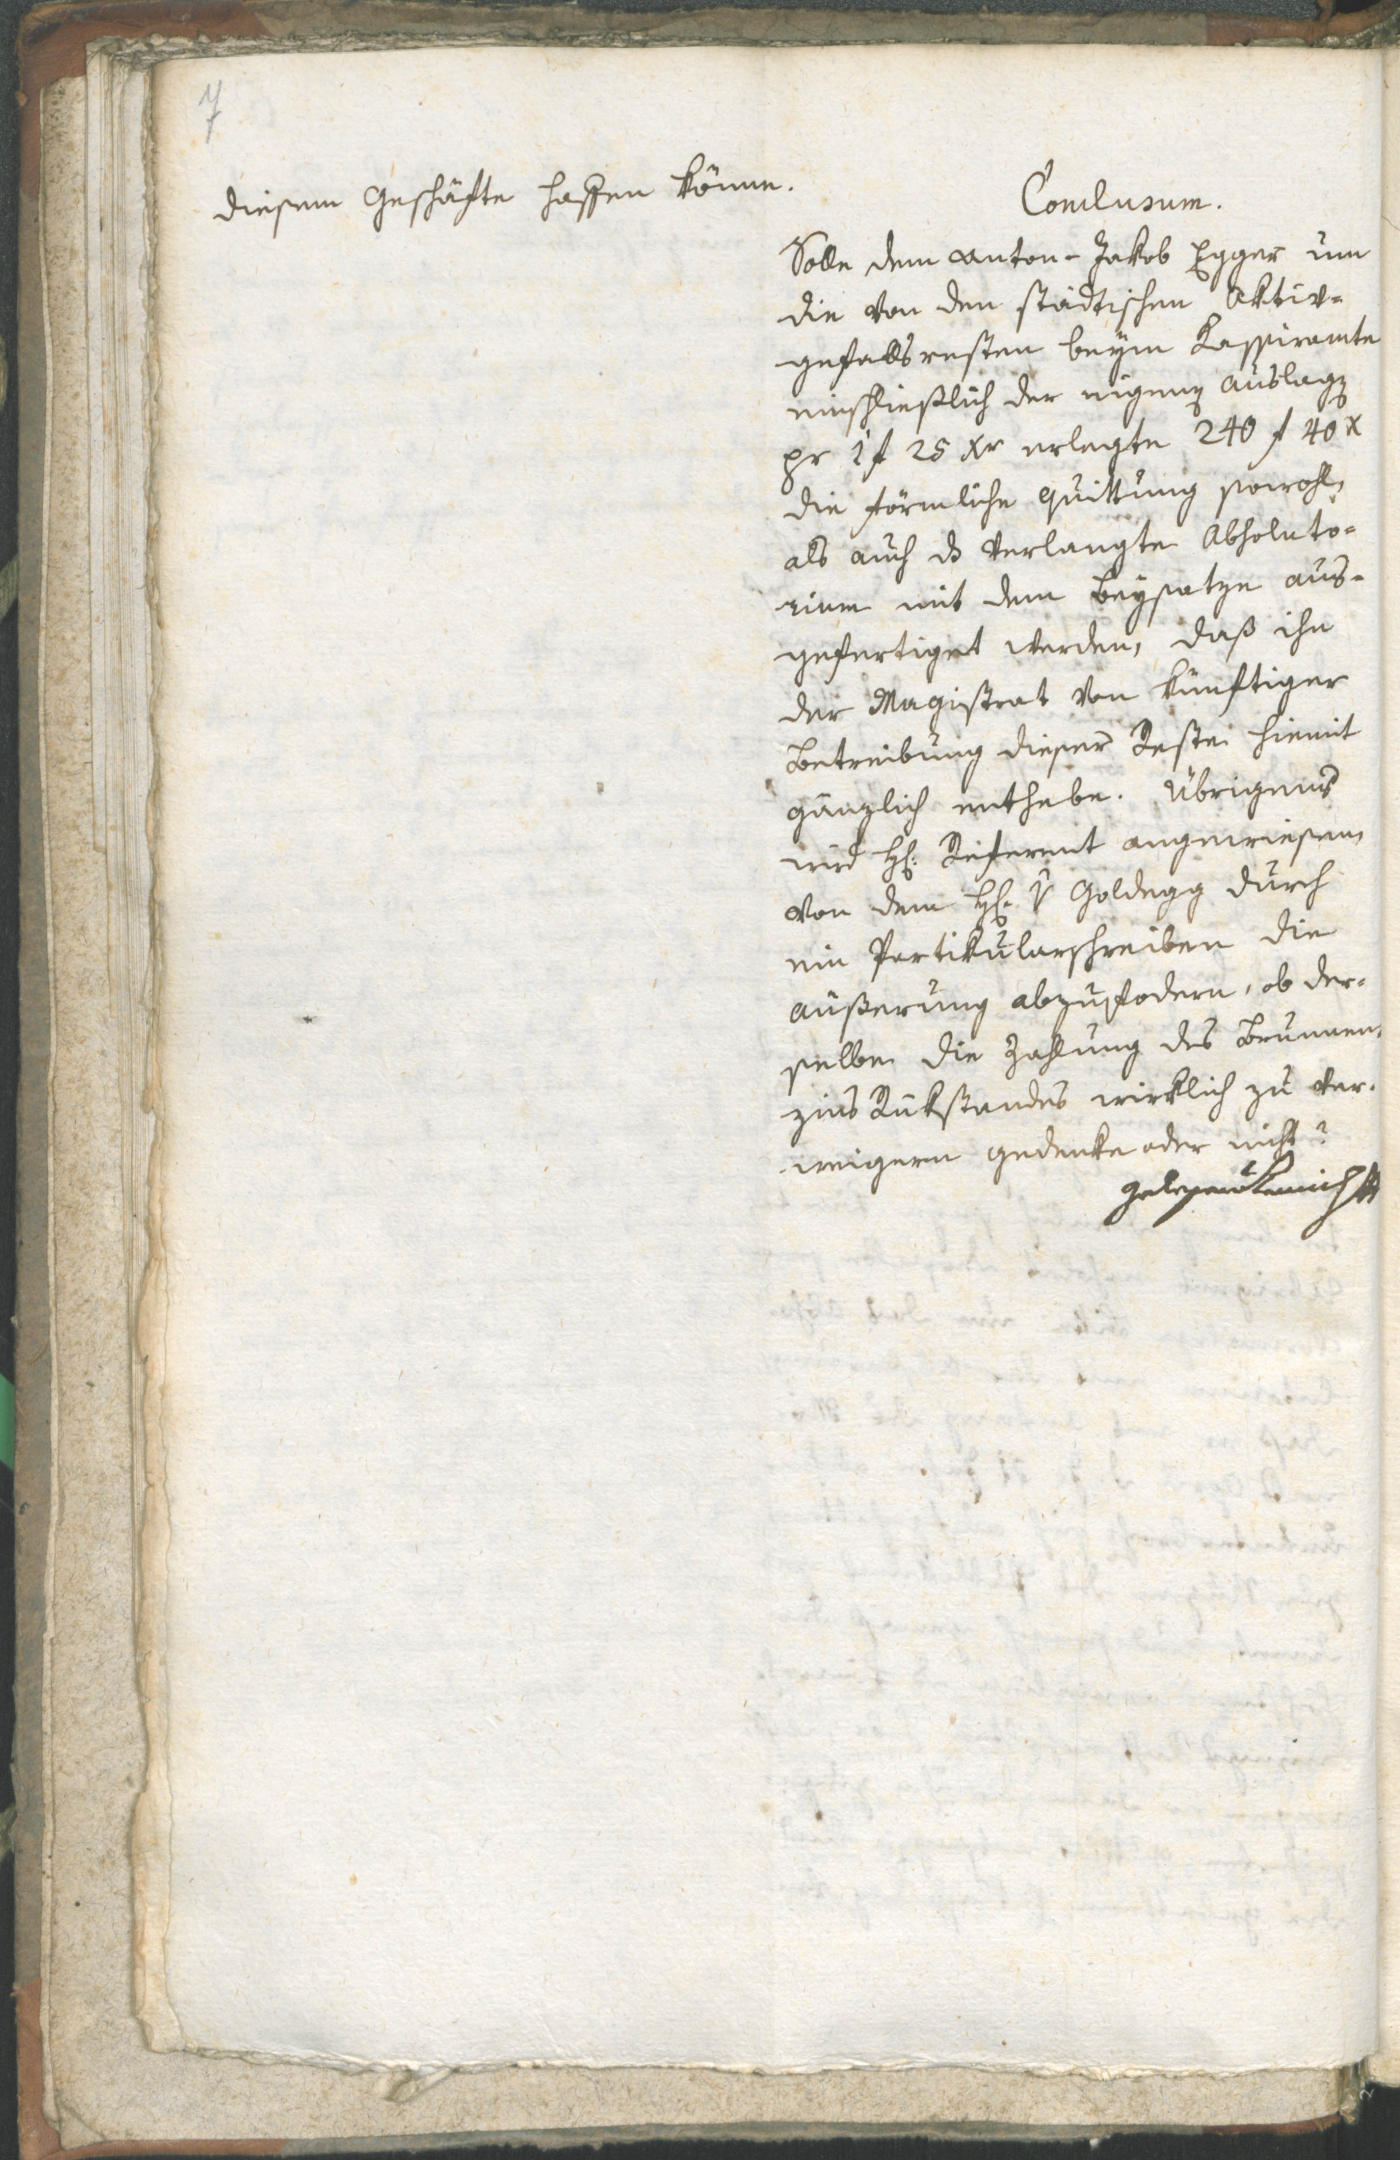 7
diesem Geschäfte hassen könne.
Conclusum.
Solle dem Anton-Jakob Egger um
die von den städtischen Aktiv-
gefällsresten beym Kassieramte
einschließlich der eigenen Auslagen
pr 1 f 25 xr erlegte 240 f 40 x
die förmliche Quittung sowohl,
als auch ds verlangte Absoluto-
rium mit dem Beysatze aus-
gefertiget werden, daß ihn
der Magistrat von künftiger
Betreibung dieser Reste hiemit
gänzlich enthebe. Übrigens
wird H: Referent angewiesen,
von dem H: v Goldegg durch
ein Partikularschreiben die
Äußerung abzufodern, ob der-
selbe die Zahlung des Brunnen-
zins Rükstandes wirklich zu ver-
weigern gedenke oder nicht?